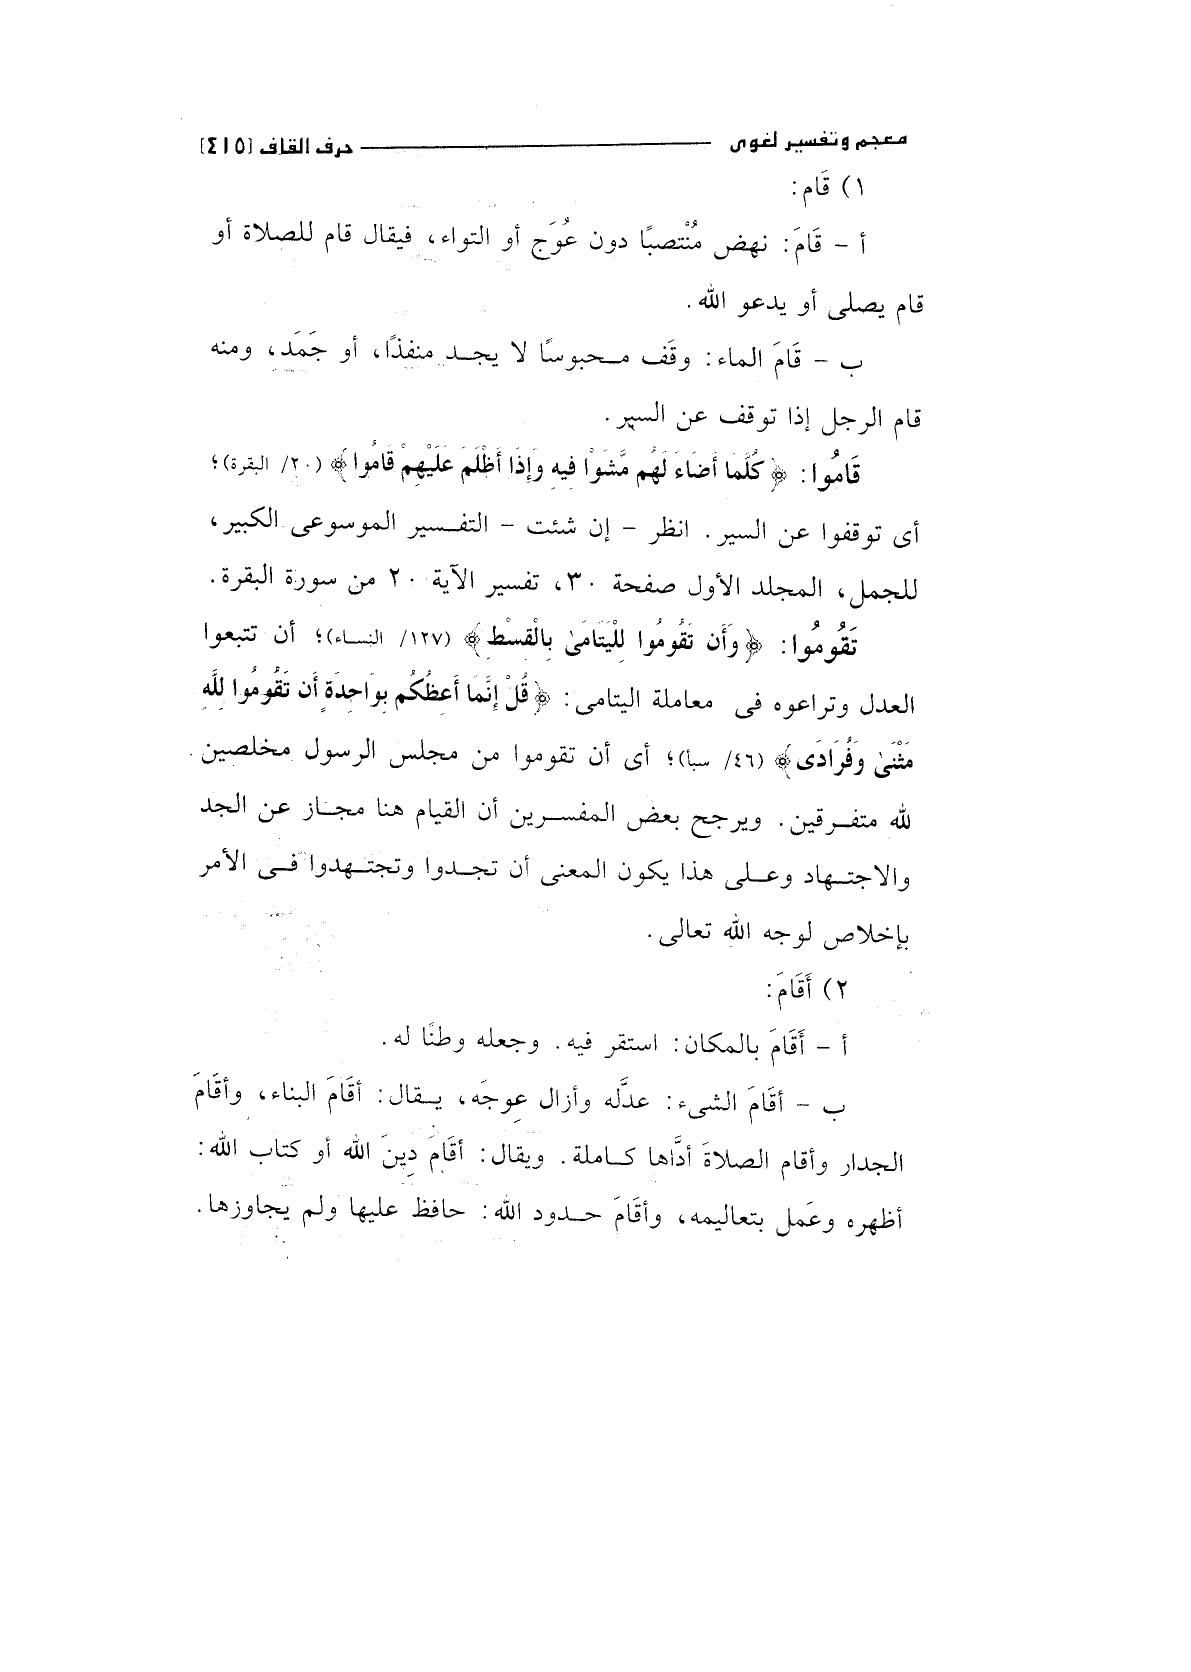 معجم وتفسير لغوى — حرف القاف [٤١٥]
١) قَام:
أ – قَامَ: نهض مُنْتصبًا دون عُوَج أو التواء، فيقال قام للصلاة أو
قام يصلى أو يدعو الله.
ب – قَامَ الماء: وقَف محبوسًا لا يجد منفذًا، أو جَمَد، ومنه
قام الرجل إذا توقف عن السير.
قَامُوا: ﴿كُلَّمَا أَضَاءَ لَهُم مَّشَوْا فِيهِ وَإِذَا أَظْلَمَ عَلَيْهِمْ قَامُوا﴾ (٢٠/ البقرة)؛
أى توقفوا عن السير. انظر – إن شئت – التفسير الموسوعى الكبير،
للجمل، المجلد الأول صفحة ٣٠، تفسير الآية ٢٠ من سورة البقرة.
تَقُومُوا: ﴿وَأَن تَقُومُوا لِلْيَتَامَىٰ بِالْقِسْطِ﴾ (١٢٧/ النساء)؛ أن تتبعوا
العدل وتراعوه فى معاملة اليتامى: ﴿قُلْ إِنَّمَا أَعِظُكُم بِوَاحِدَةٍ أَن تَقُومُوا لِلَّهِ
مَثْنَىٰ وَفُرَادَى﴾ (٤٦/ سبأ)؛ أى أن تقوموا من مجلس الرسول مخلصين
لله متفرقين. ويرجح بعض المفسرين أن القيام هنا مجاز عن الجد
والاجتهاد وعلى هذا يكون المعنى أن تجدوا وتجتهدوا فى الأمر
بإخلاص لوجه الله تعالى.
٢) أَقَامَ:
أ – أَقَامَ بالمكان: استقر فيه. وجعله وطنًا له.
ب – أقَامَ الشىء: عدَّله وأزال عوجَه، يقال: أقَامَ البناء، وأقَامَ
الجدار وأقام الصلاةَ أدَّاها كاملة. ويقال: أقَامَ دِينَ الله أو كتاب الله:
أظهره وعَمل بتعاليمه، وأقَامَ حدود الله: حافظ عليها ولم يجاوزها.